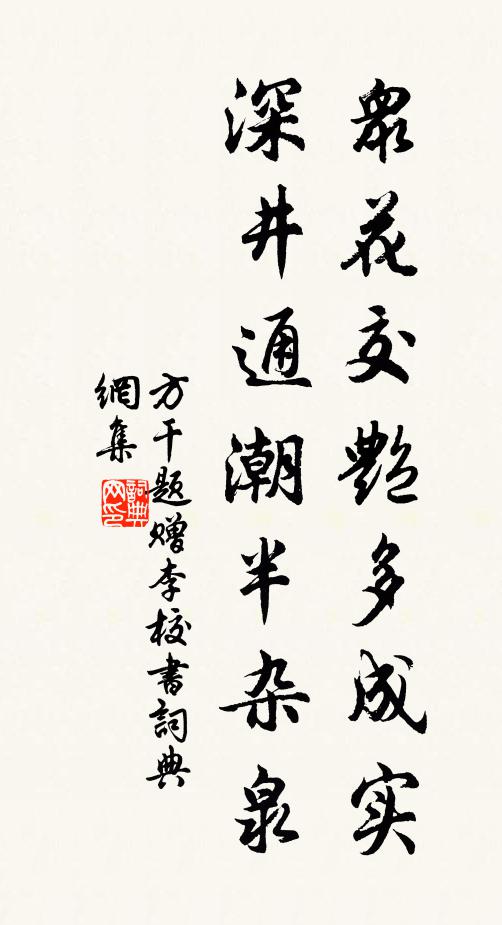 眾花交艷多成实
深井通潮半杂泉
方干题赠李校書詞典
網集
詞典网印